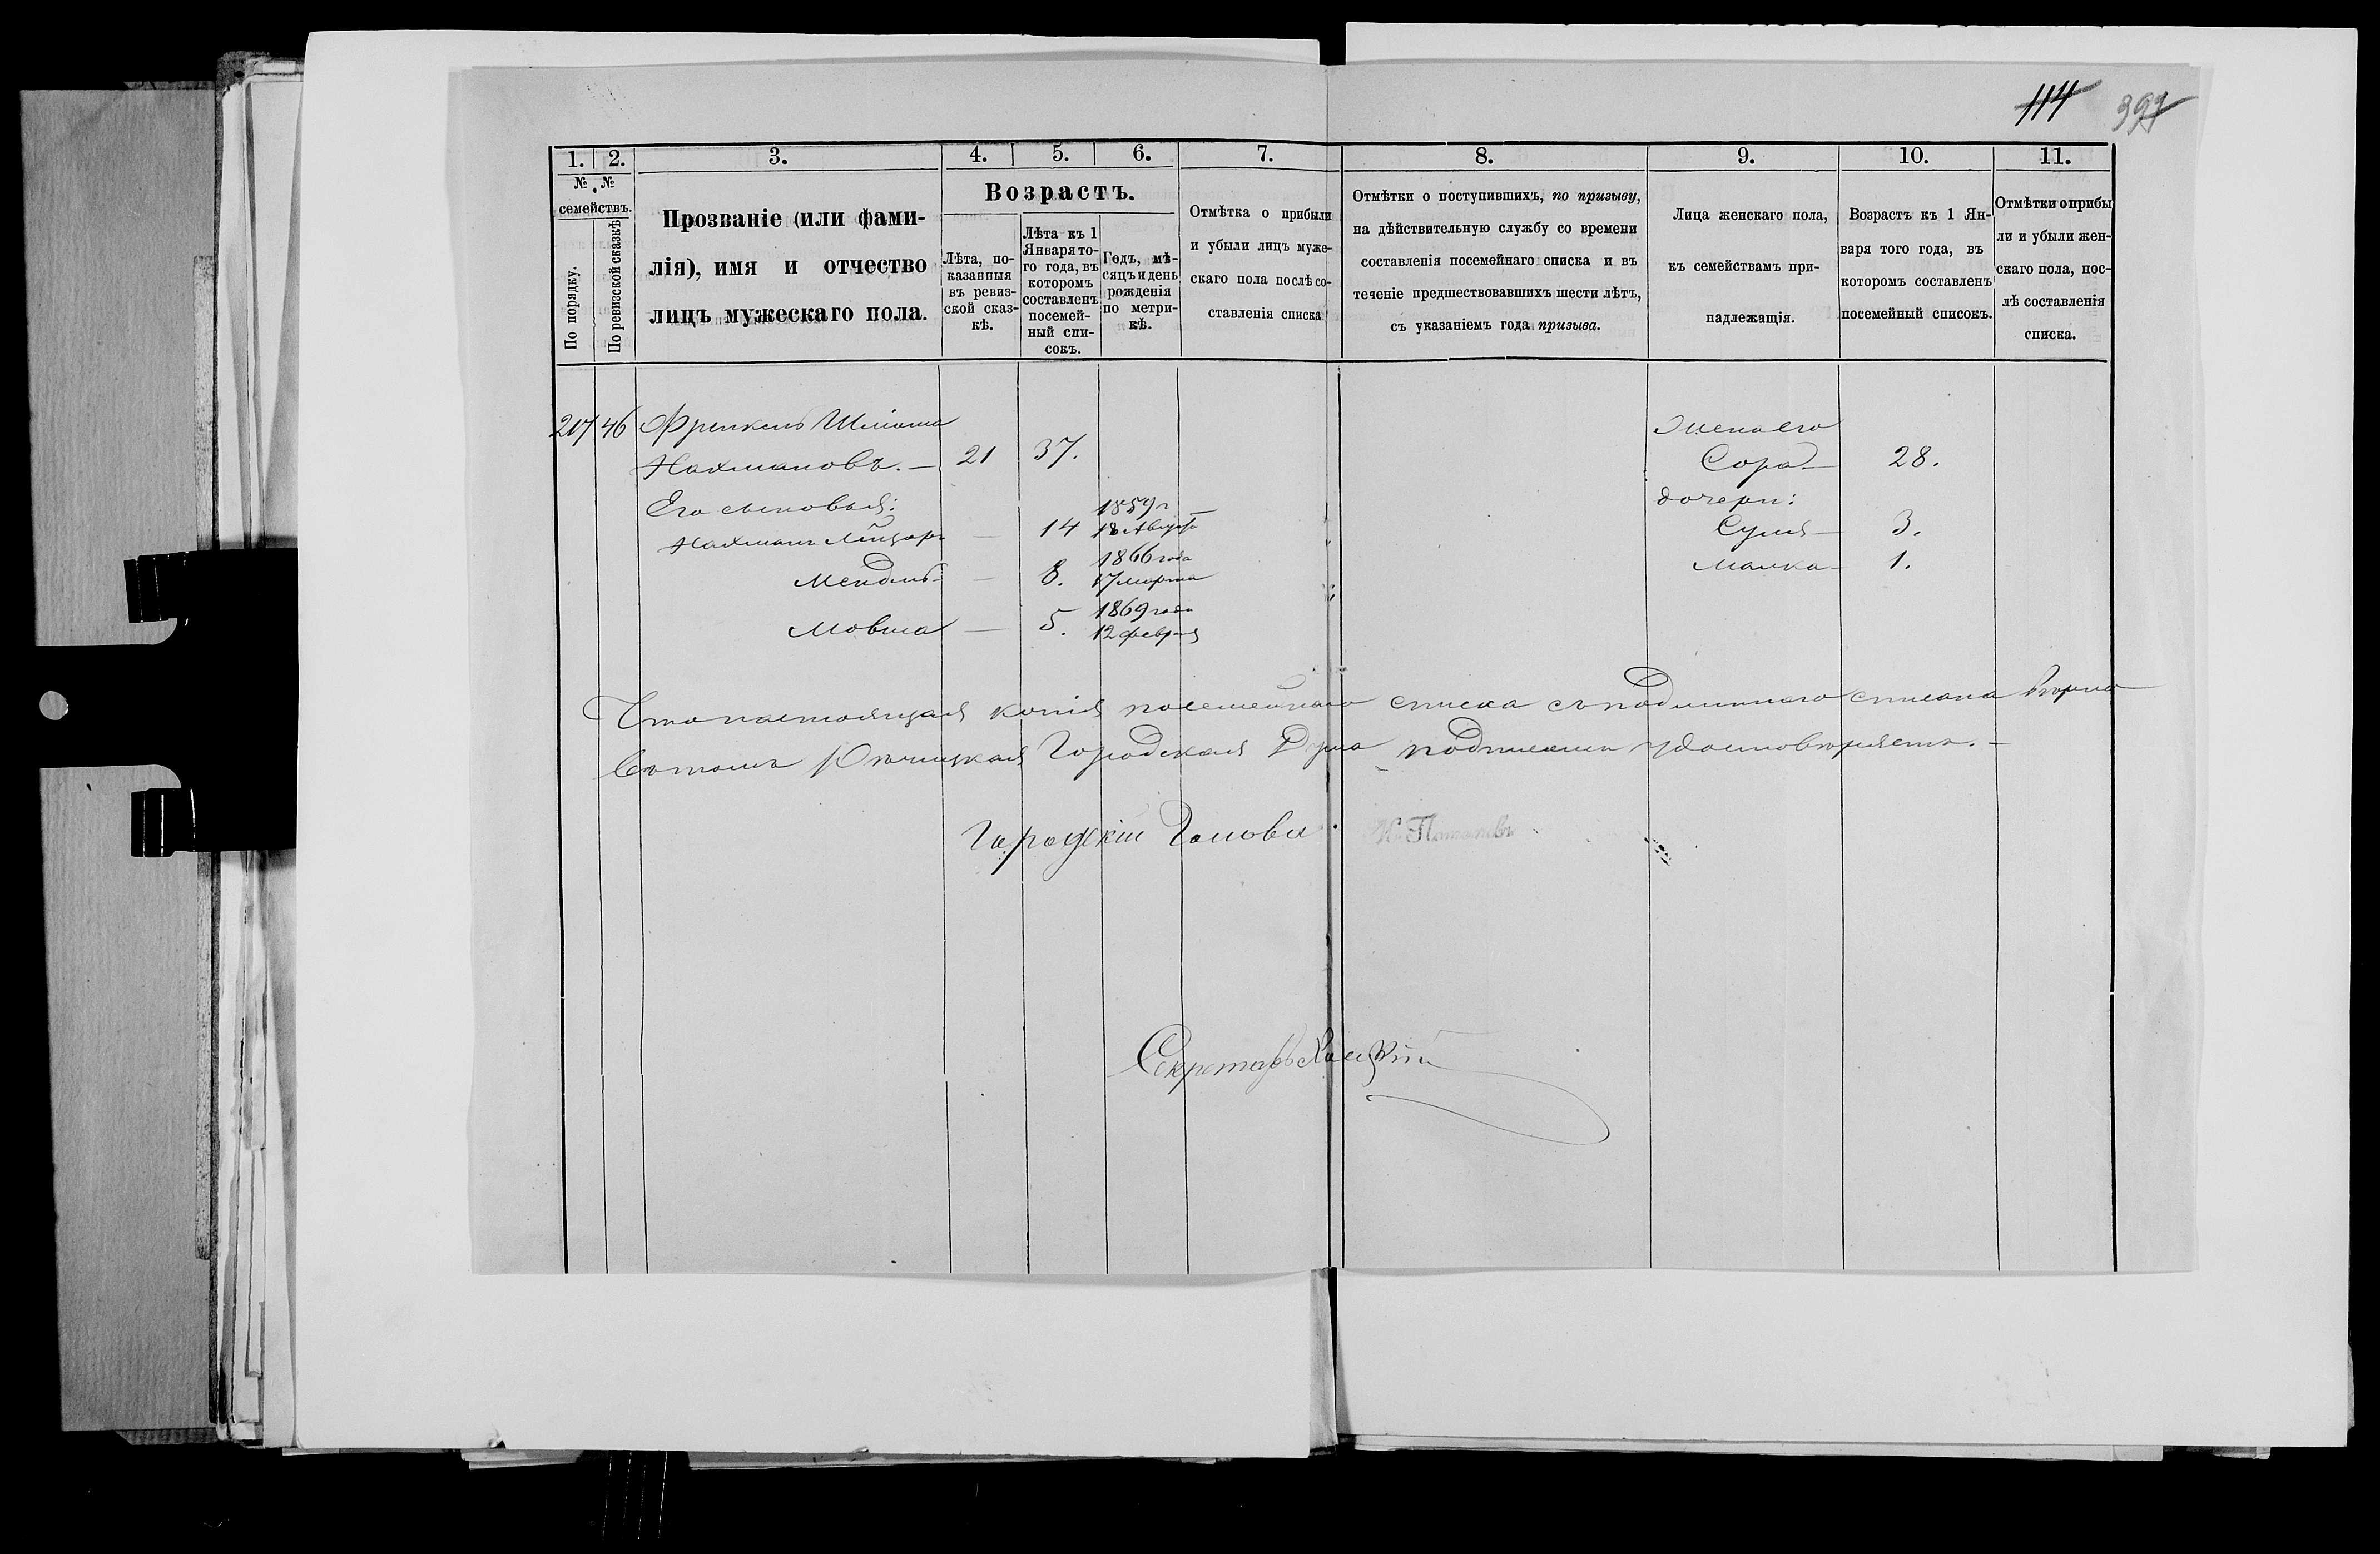 114 397
1. 2. 3. 4. 5. 6. 7. 8. 9. 10. 11.
№ № семействъ.
По порядку.
По ревизской сказкѣ
Прозваніе (или фами-
лія), имя и отчество
лицъ мужескаго пола.
Возрастъ.
Лѣта, по-
казанныя
въ ревиз-
ской сказ-
кѣ.
Лѣта къ 1
Января то-
го года, въ
которомъ
составленъ
посемей-
ный спи-
сокъ.
Годъ, мѣ-
сяцъ и день
рожденія
по метри-
кѣ.
Отмѣтка о прибыли
и убыли лицъ муже-
скаго пола послѣ со-
ставленія списка
Отмѣтки о поступившихъ, по призыву,
на дѣйствительную службу со времени
составленія посемейнаго списка и въ
теченіе предшествовавшихъ шести лѣтъ,
съ указаніемъ года призыва.
Лица женскаго пола,
къ семействамъ при-
надлежащія.
Возрастъ къ 1 Ян-
варя того года, въ
которомъ составленъ
посемейный списокъ.
Отмѣтки о прибы
ли и убыли жен-
скаго пола, пос-
лѣ составленія
списка.
217 46 Френкель Шліома Жена его
Нахмановъ. — 21 37. Сора — 28.
Его сыновья: 1859 г — дочери:
Нахманъ — 14 18 Августа Суля — 3.
Мендль — 8. 1866 года 17 марта Малка — 1.
Мовша — 5. 1869 года 12 февраля
Что настоящая копія посемейнаго списка съ подлиннаго списана вѣрно
въ томъ Рѣчицкая Городская Дума подписомъ удостовѣряетъ. —
Городскій Голова
Секретарь